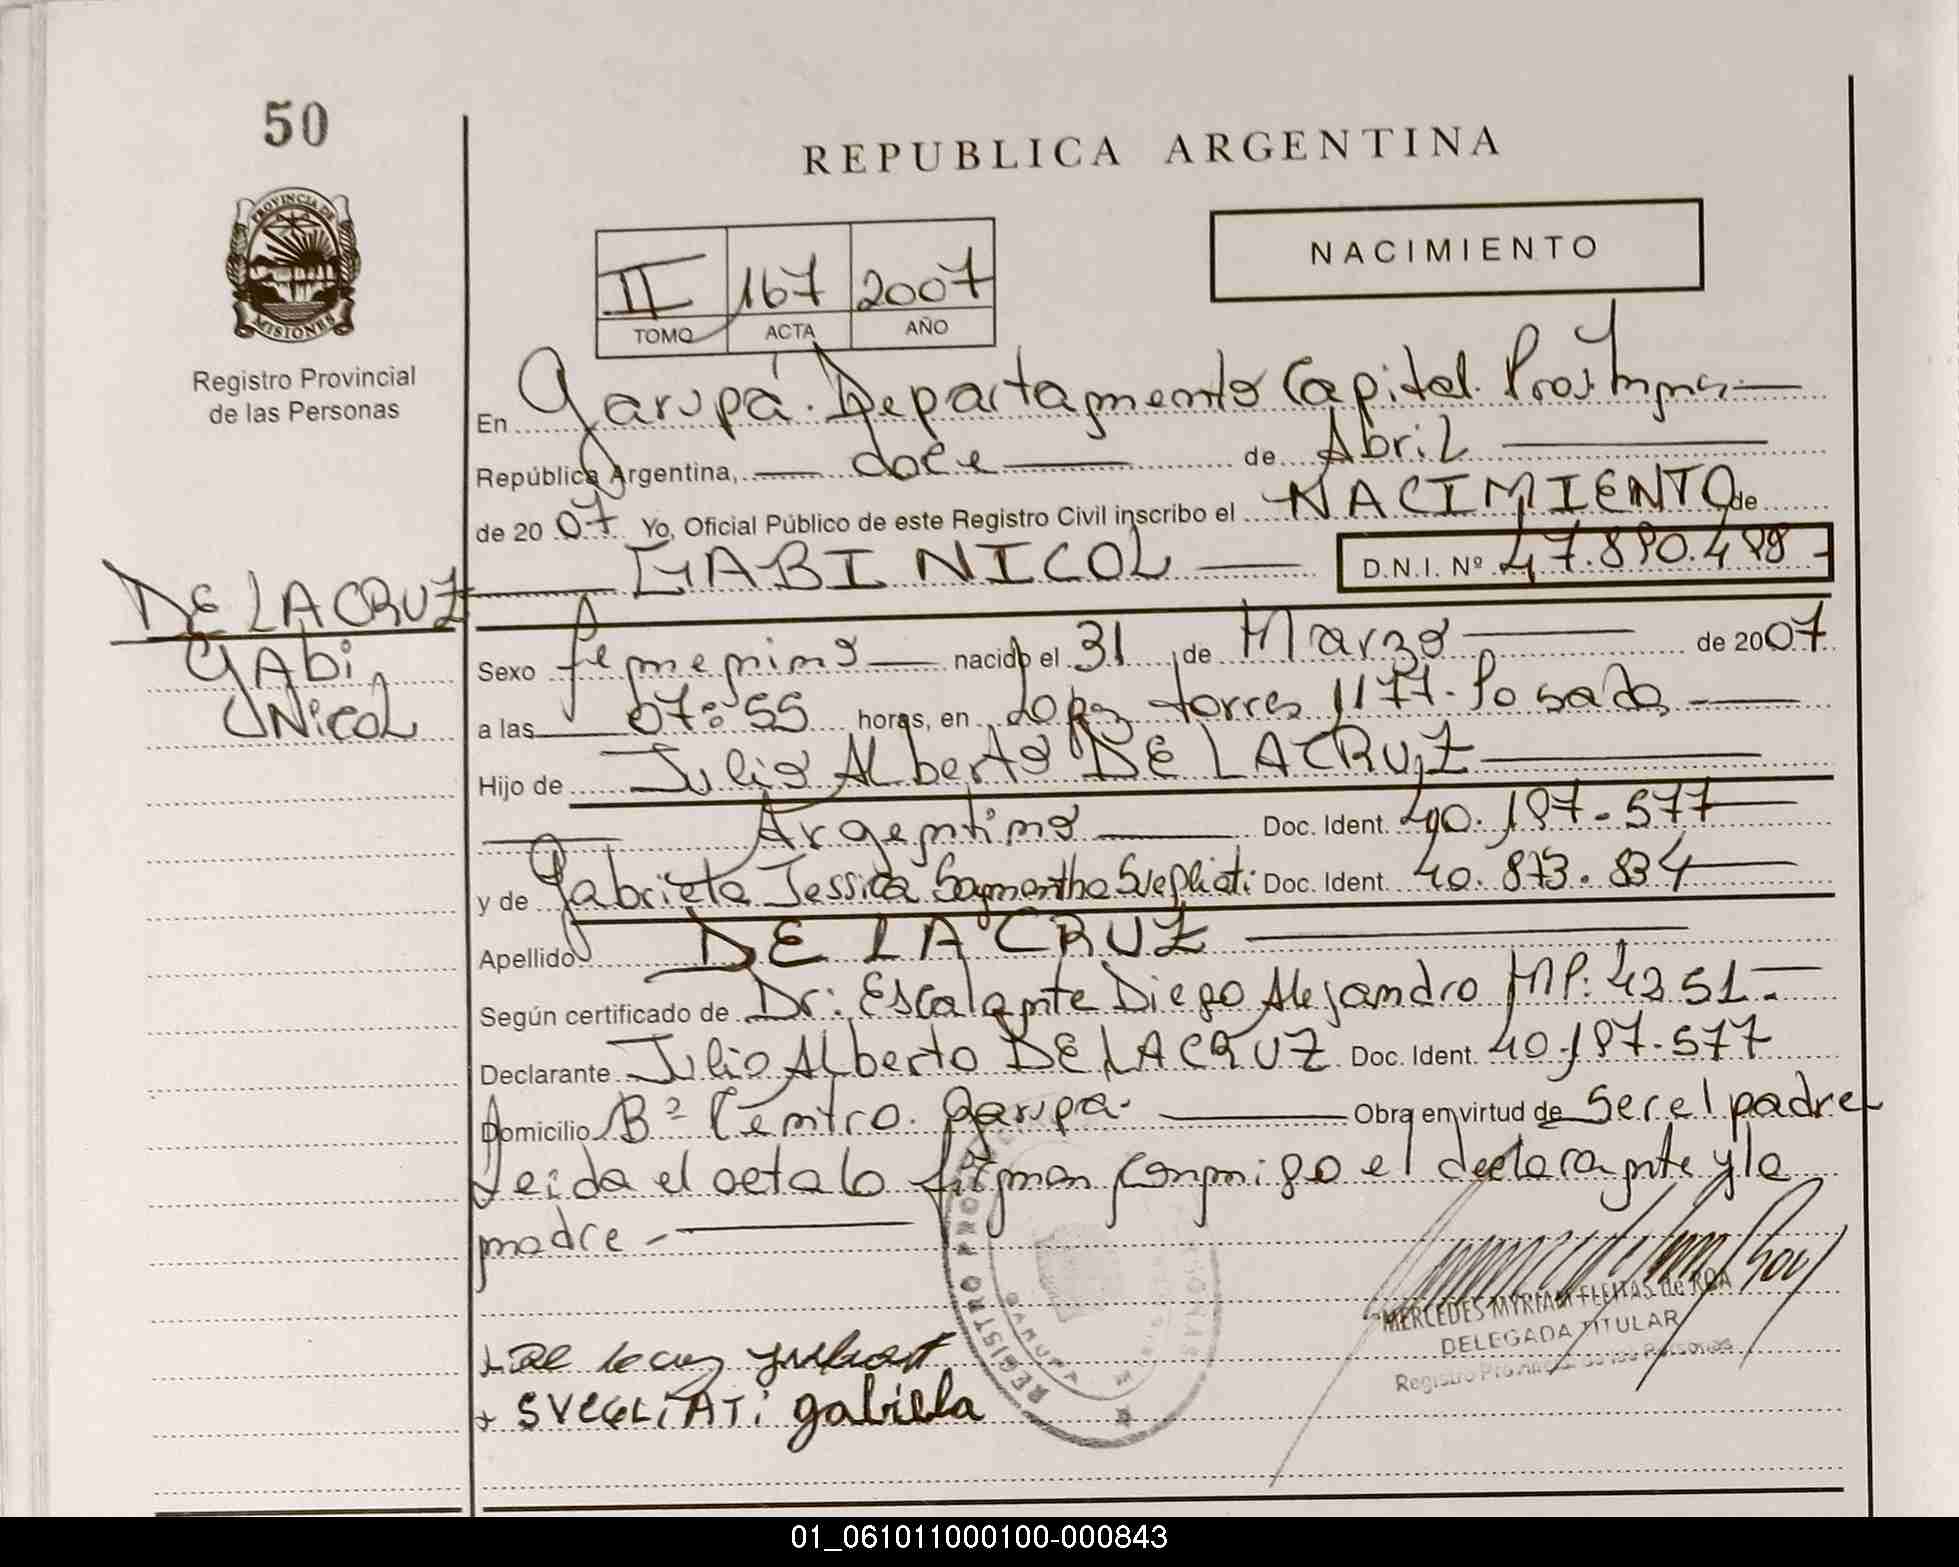 50
REPUBLICA ARGENTINA
PROVINCIA DE
MISIONES
Registro Provincial
de las Personas
II 167 2007
TOMO ACTA AÑO
NACIMIENTO
En Garupá. Departamento Capital. Prov.
República Argentina, doce de Abril
de 2007 Yo, Oficial Público de este Registro Civil inscribo el NACIMIENTO de
GABI NICOL D.N.I. Nº 47.890.498
DE LA CRUZ
Gabi
Nicol
Sexo femenino nacido el 31 de Marzo de 2007
a las 07:55 horas, en Lopez torres 1177. Posadas
Hijo de Julio Alberto DE LA CRUZ
Argentino Doc. Ident. 40.197.577
y de Gabriela Jessica Samantha Svegliati Doc. Ident. 40.873.834
Apellido DE LA CRUZ
Según certificado de Dr: Escalante Diego Alejandro MP. 4251.
Declarante Julio Alberto DE LA CRUZ Doc. Ident. 40.197.577
Domicilio Bº Centro. Garupa. Obra en virtud de Ser el padre
Leida el acta lo firman conmigo el declarante y la
madre
De la cruz
SVEGLIATi gabriela
REGISTRO
MERCEDES MYRIAM FLEITAS de ROA
DELEGADA TITULAR
Registro Provincial de las Personas
01_061011000100-000843